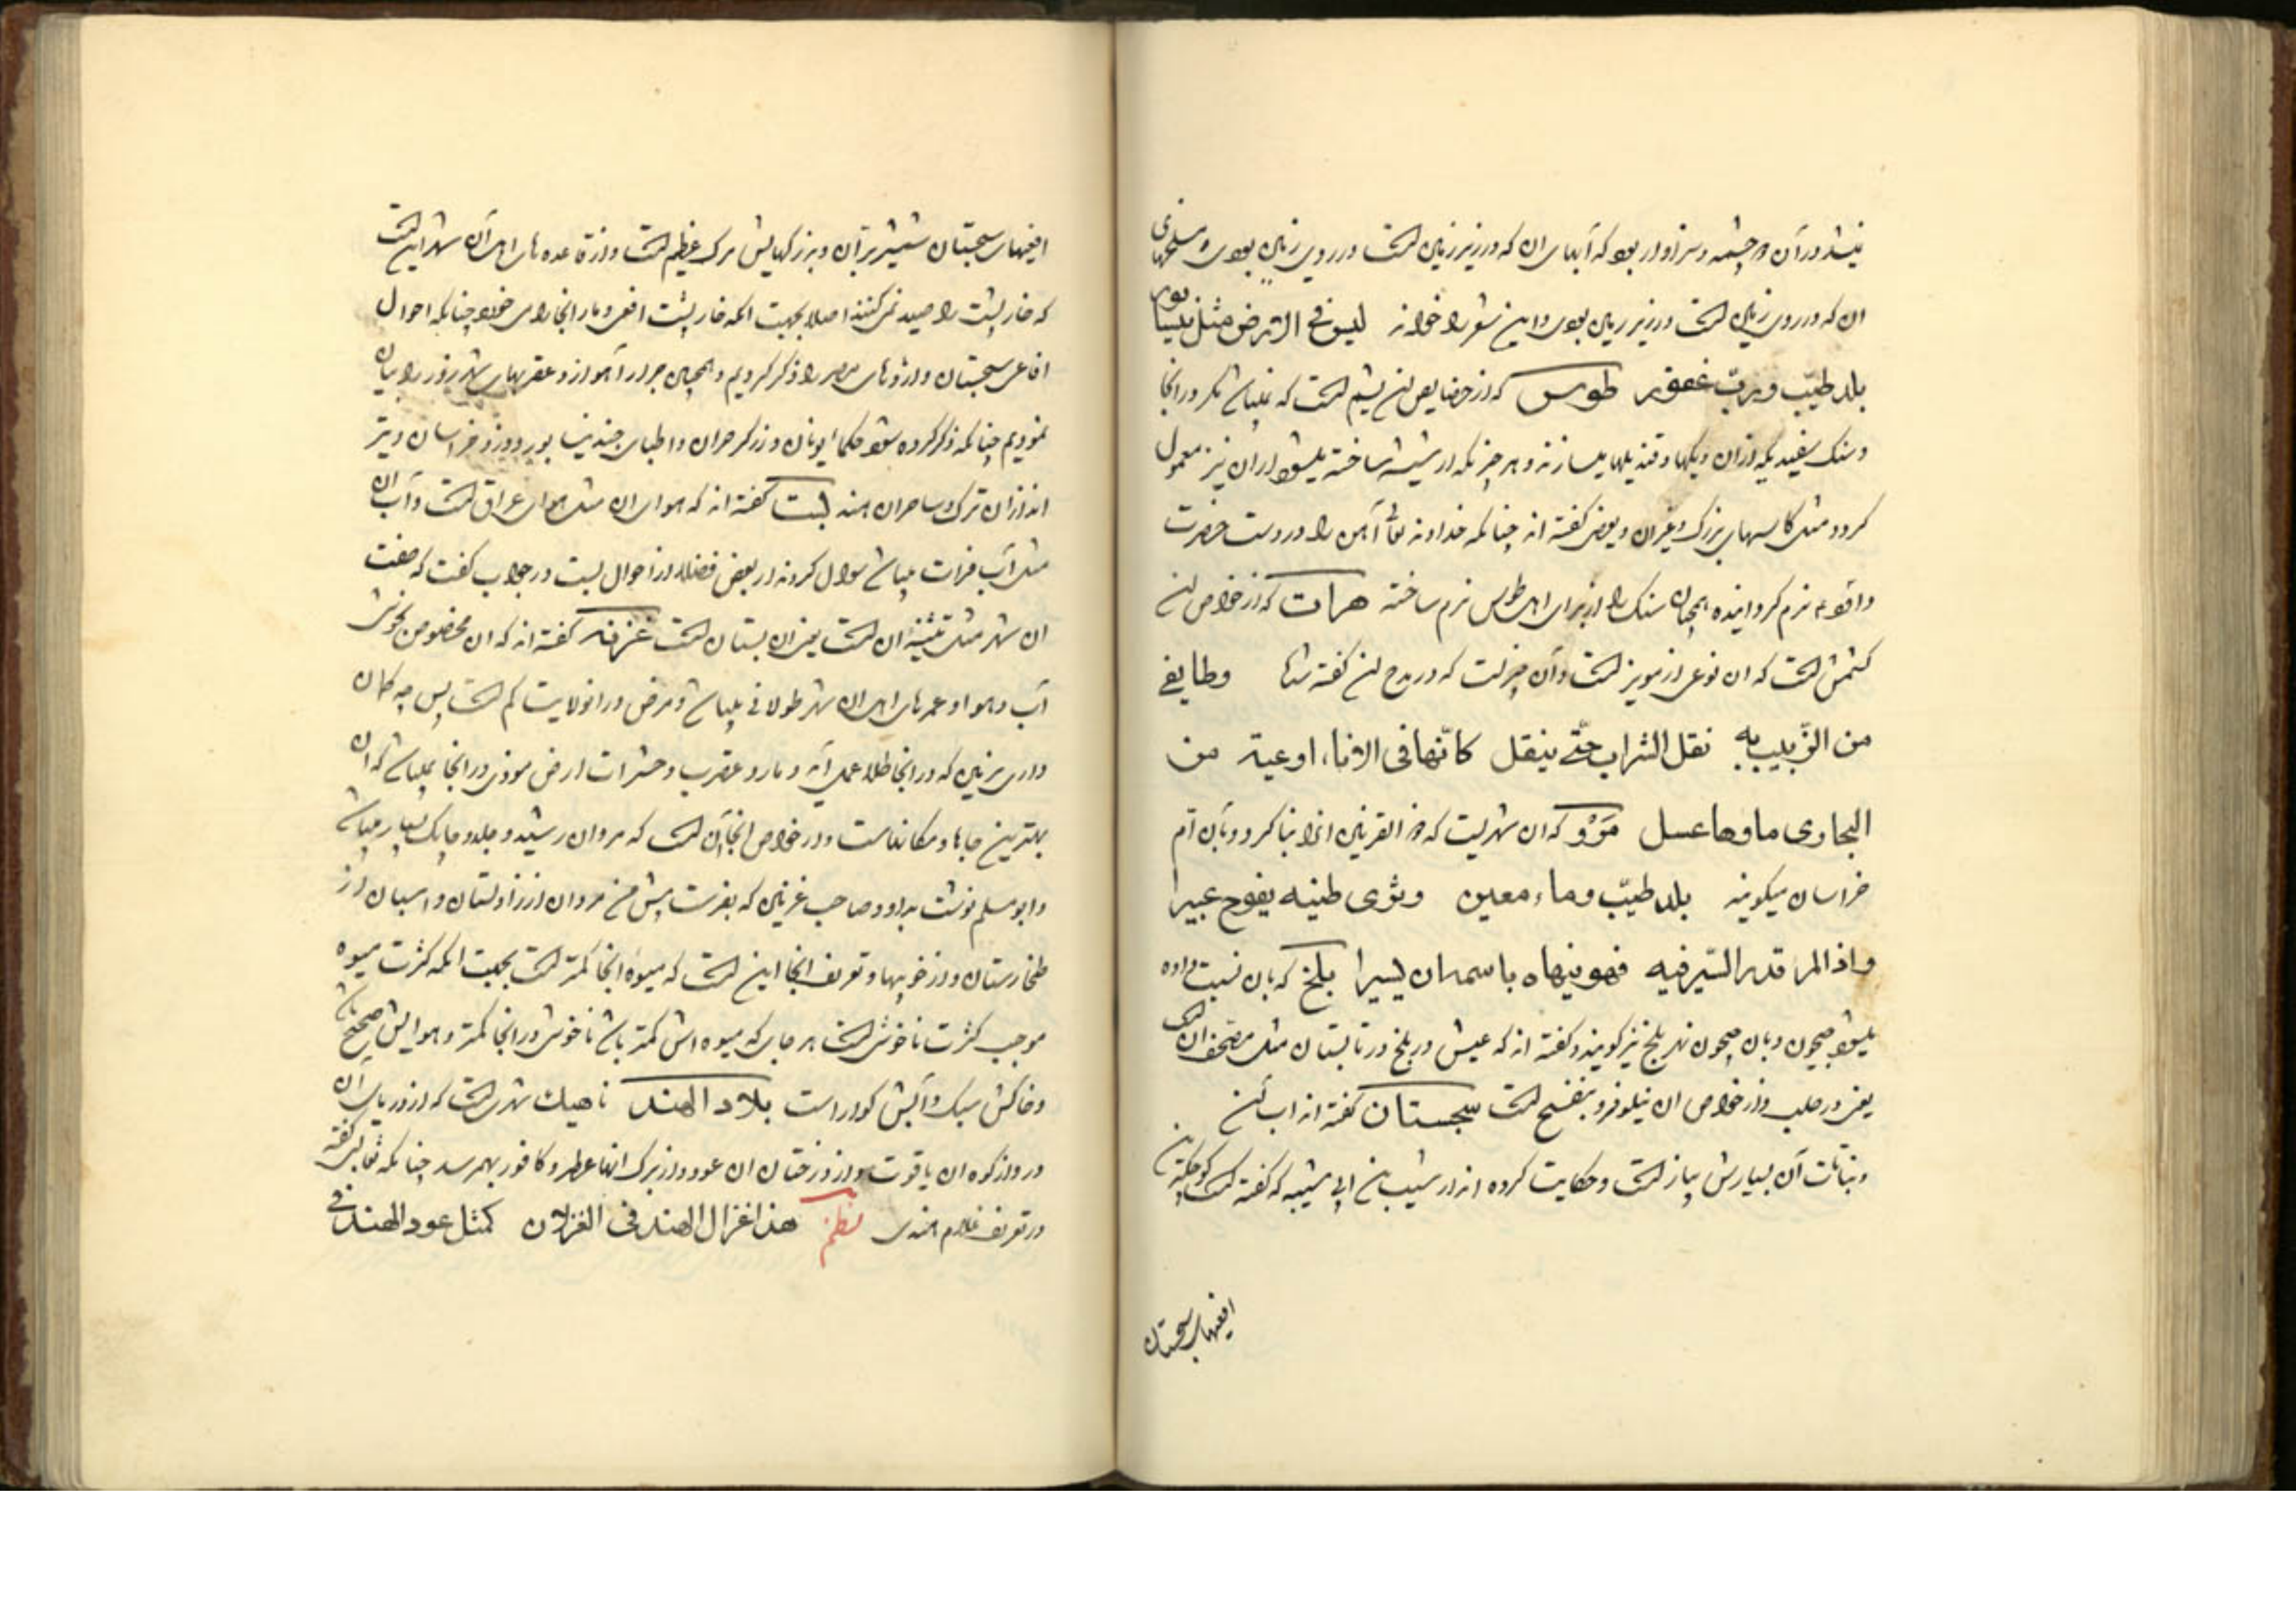 نیشد در آن و چشمه و سزاوار بود که آبهای ان که در زیر زمین است در روی زمین بودی و
ان که در روی زمین است در زیر زمین بودی و این شعر را خواند لیس فی الارض مثل نیسابور
بلد طیّب و ربّ غفور طوس که از خصایص ان یشم است که نمیباشد مگر در انجا
و سنک سفیدیکه از ان دیکها و قندیلها میسازند و هر چیزیکه از شیشه ساخته میشود از ان نیز معمول
کردد مثل کاسهای بزرک و غیر ان و بعضی کفته اند چنانکه خداوند تعالی آهن را در دست حضرت
داود نرم کردانیده همچنان سنک را از برای اهل طوس نرم ساخته هرات که از خواص ان
کشمش است که ان نوعی از مویز است و آن چیزیست که در مدح ان کفته شد وطایفی
من الزّبیب به نقل الشراب حتّی ینقل کانّها فی الاناء اوعیة من
البجاوی ماوها عسل مَرْو که ان شهریست که ذو القرنین انرا بنا کرد و بآن ام
خراسان میکویند بلد طیّب وماء معین وثری طینه یفوح عبیرا
واذا المر قدر السّیر فیه فهو ینهاه باسمه ان یسیرا بلخ که بان نسبت داده
میشود جیحون و بان جیحون نهر بلخ نیز کویند و کفته اند که عیش در بلخ در تابستان مثل مصحف ان است
یعنی در حلب و از خواص ان نیلوفر و بنفسج است سجستان کفته اند اب ان
و نباتات آن بسیارش پیاز است و حکایت کرده اند از شبیب بن ابی شیبه که کفته است کوچکترین
افعیهای سجستان
افعیهای سجستان شمشیر برّان و بزرکهایش مرک عظیم است و از قاعده های اهل آن شهر این است
که خارپشت را صید نمی کنند اصلا بجهت انکه خارپشت افعی و مار انجا را می خورد چنانکه احوال
افاعی سجستان و اژدهای مصر را ذکر کردیم و همچنین جرار اهواز و عقربهای شهرزور را بیان
نمودیم چنانکه ذکر کرده شود حکماء یونان و زرکر حران و اطبای جندیشاپور و دزد خراسان و تیر
انداز ان ترک و ساحران هند بست کفته اند که هوای ان مثل هوای عراق است و آب ان
مثل آب فرات میباشد سوال کردند از بعض فضلا از احوال بست در جواب کفت که صفت
ان شهر مثل تثنیهٔ ان است یعنی ان بستان است غزنه کفته اند که ان مخصوص بخوشی
آب و هوا و عمرهای اهل ان شهر طولانی میباشد و مرض در انولایت کم است پس چه کمان
داری بزمین که در انجا طلا بعمل آید و مار و عقرب و حشرات ارض موذی در انجا نمیباشد که ان
بهترین جاها و مکانهاست و از خواص انجا آن است که مردان رشید و جلد و چابک بسیار میباشد
و ابو مسلم نوشت بداود صاحب غزنین که بفرست پیش من مردان از زاولستان و اسبان از
طخارستان و از خوبیها و تعریف انجا این است که میوهٔ انجا کمتر است بجهت انکه کثرت میوه
موجب کثرت ناخوشی است هر جای که میوه اش کمتر باشد ناخوشی در انجا کمتر و هوایش صحیح باشد
و خاکش سبک و آبش کوار است بلاد الهند ناهیك شهری است که از دریای آن
در و از کوه ان یاقوت و از درختان ان عود و از برک انها عطر و کافور بهم رسد چنانکه ثعالبی کفته
در تعریف غلام هندی نظم هذا غزال الهند فی الغزلان کمثل عود الهند فی